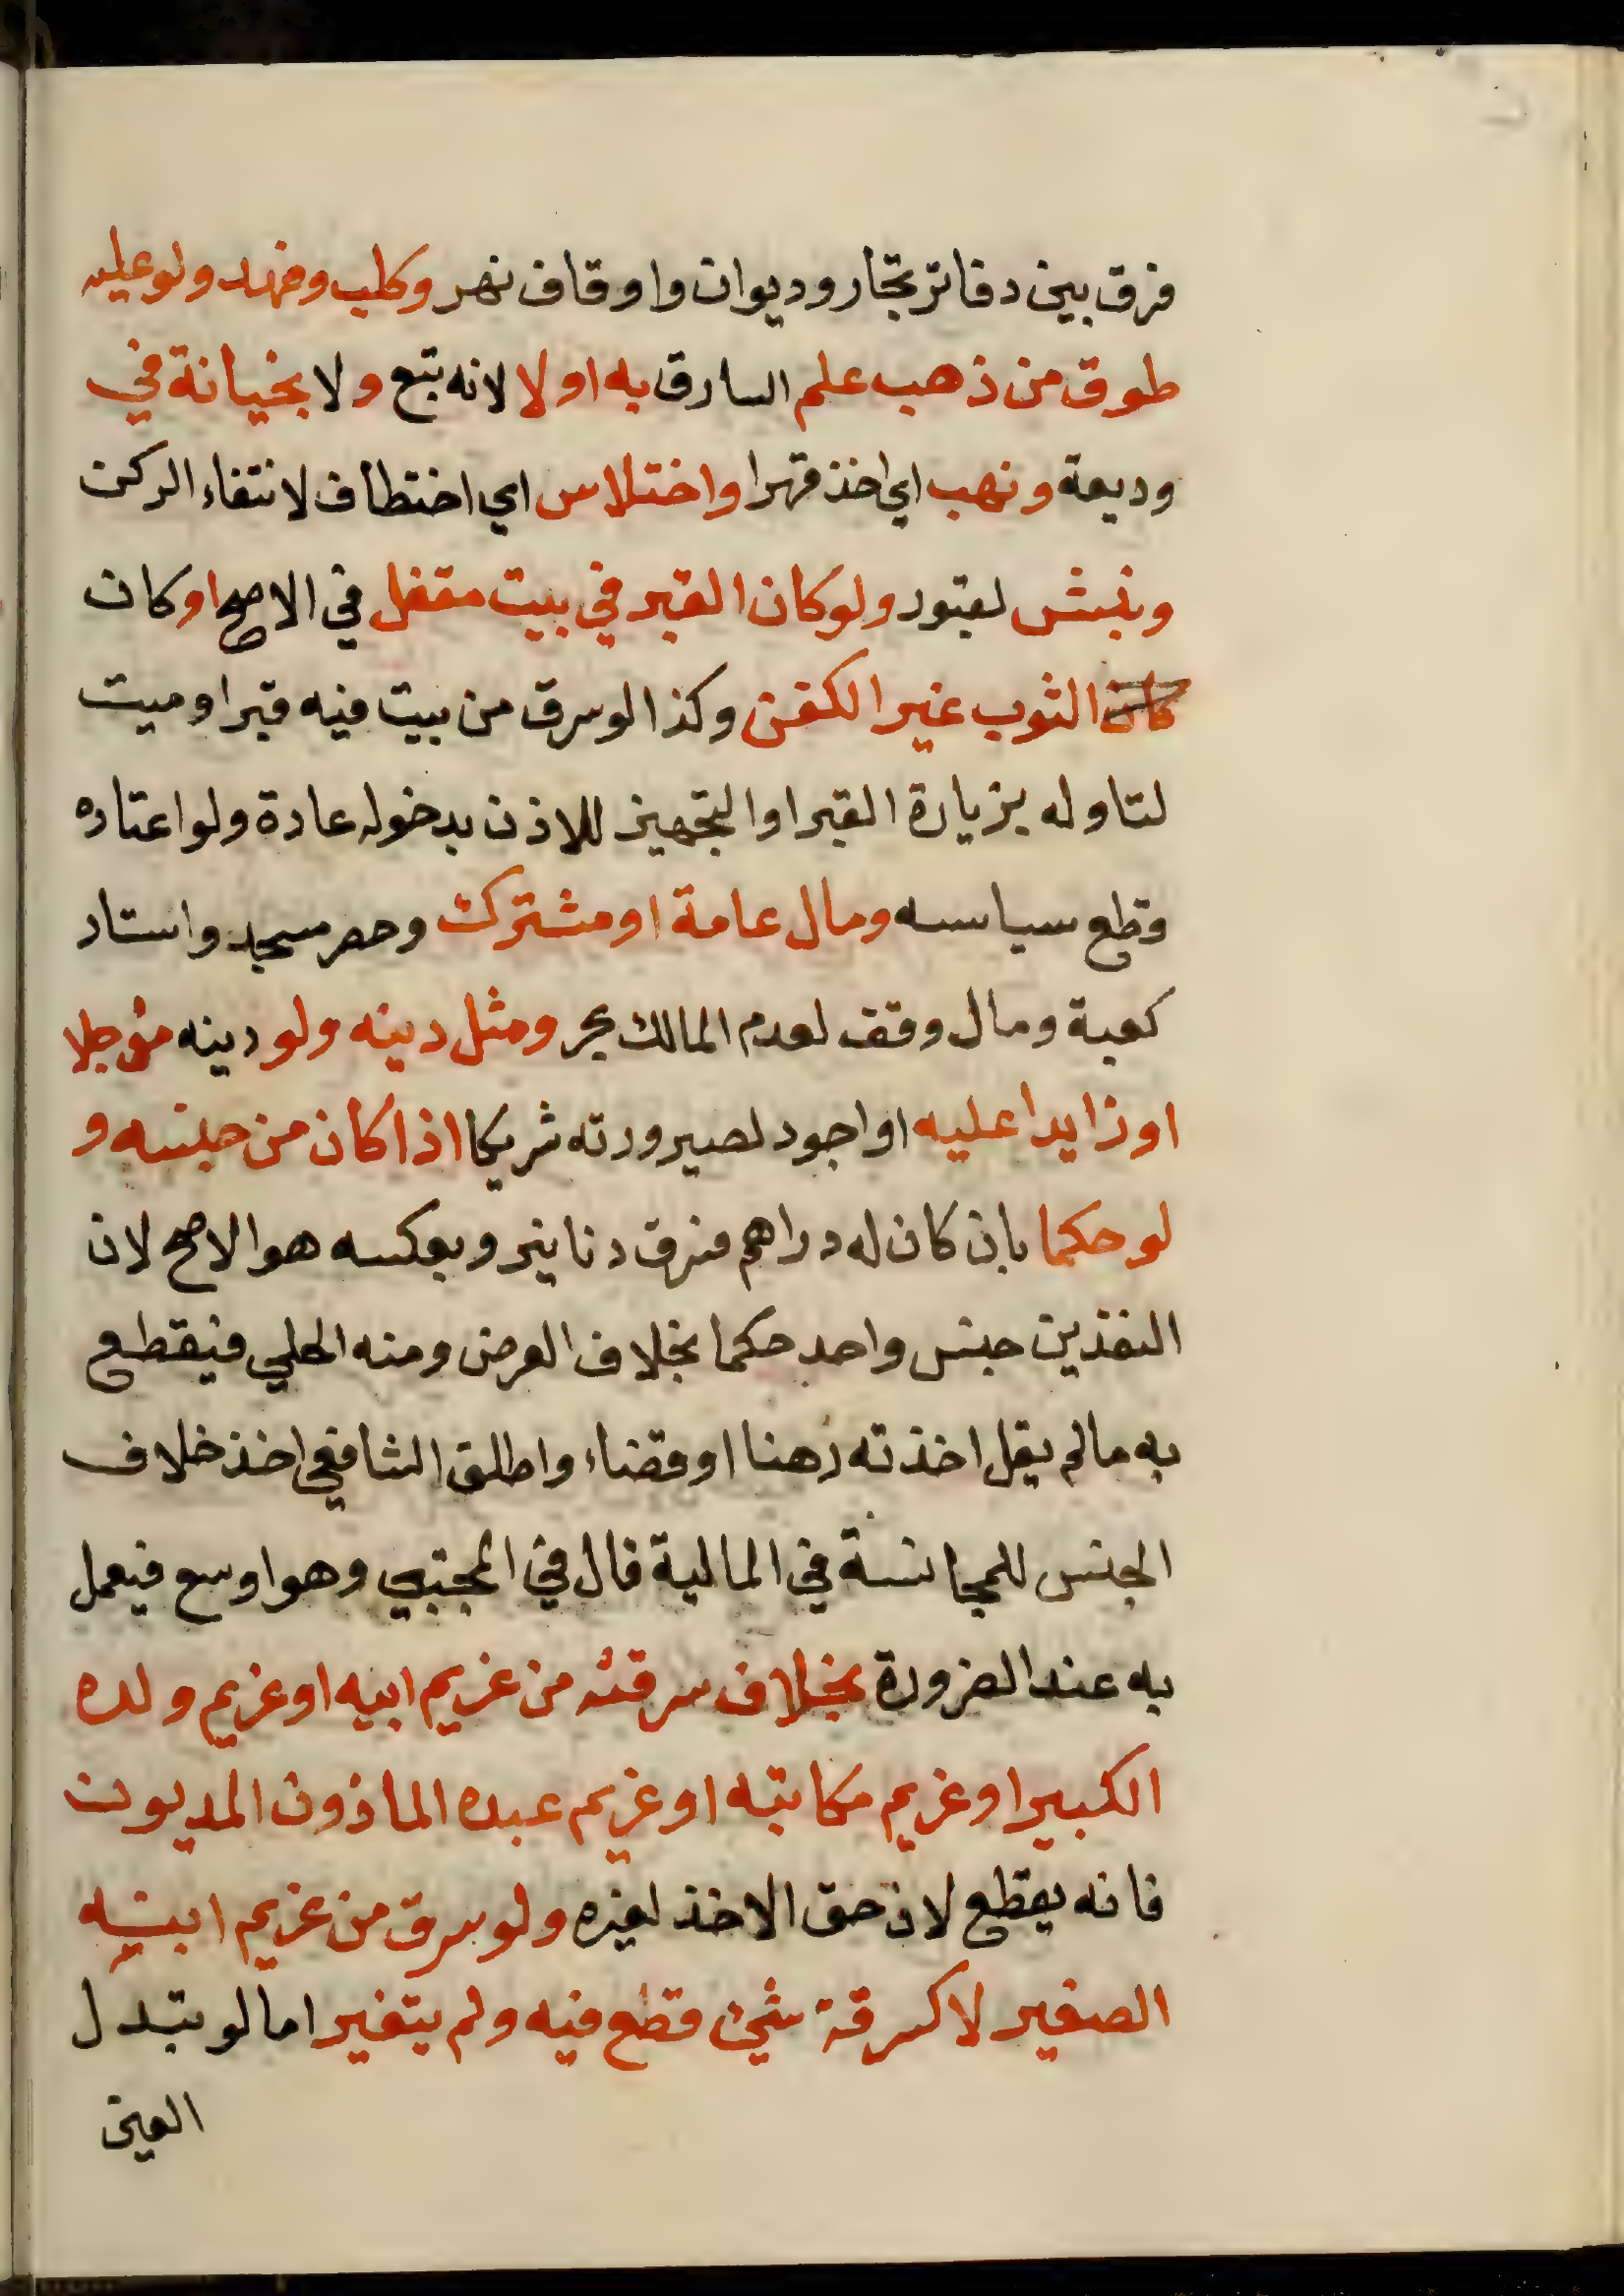 فرق بين دفاتر تجار وديوان واوقاف نهر وكلب وفهد ولو عليه
طوق من ذهب علم السارق به او لا لانه تبع ولا بخيانة في
وديعة ونهب اي اخذ قهرا واختلاس اي اختطاف لانتفاء الركن
ونبش لقبور ولو كان القبر في بيت مقفل في الاصح او كان
كان الثوب غير الكفن وكذا لو سرق من بيت فيه قبر او ميت
لتاوله بزيارة القبر او التجهيز للاذن بدخوله عادة ولو اعتاده
قطع سياسه ومال عامة او مشترك وحصر مسجد واستار
كعبة ومال وقف لعدم المالك بحر ومثل دينه ولو دينه مؤجلا
او زايدا عليه او اجود لصيرورته شريكا اذا كان من جنسه و
لو حكما بان كان له دراهم فسرق دنانير وبعكسه هو الاصح لان
النقدين جنس واحد حكما بخلاف العرض ومنه الحلي فيقطع
به ما لم يقل اخذته رهنا او قضاء واطلق الشافعي اخذ خلاف
الجنس للمجانسة في المالية قال في المجتبي وهو اوسع فيعمل
به عند الضرورة بخلاف سرقته من غريم ابيه او غريم ولده
الكبير او غريم مكاتبه او غريم عبده الماذون المديون
فانه يقطع لان حق الاخذ لغيره ولو سرق من غريم ابنه
الصغير لا كسرقة شيئ قطع فيه ولم يتغير اما لو تبدل
العين